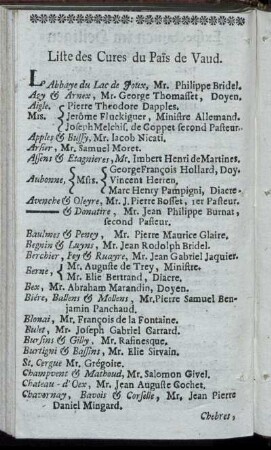 Liste des Cures du Païs de Vaud.
L'Abbaye du Lac de Joux, Mr. Philippe Bridel.
Acy & Arnex, Mr. George Thomasset, Doyen.
Aigle. Pierre Theodore Dapples.
Mrs. Jerôme Fluckiguer, Ministre Allemand.
Joseph Melchif, de Coppet second Pasteur.
Apples & Bussy, Mr. Jacob Nicati.
Arsier, Mr. Samuel Moret.
Assens & Etagnieres, Mr. Imbert Henri de Martines.
George François Hollard, Doy.
Aubonne, Mssrs. Vincent Herren,
Marc Henry Pampigni, Diacre.
Avenche & Oleyre, Mr. J. Pierre Bosset, 1er Pasteur.
& Donatire, Mr. Jean Philippe Burnat,
second Pasteur.
Baulmes & Peney, Mr. Pierre Maurice Glaire.
Begnin & Luyns, Mr. Jean Rodolph Bridel.
Berchier, Fey & Rueyre, Mr. Jean Gabriel Jaquier.
Berne, Mr. Auguste de Trey, Ministre.
Mr. Elie Bertrand, Diacre.
Bex, Mr. Abraham Marandin, Doyen.
Biére, Ballens & Mollens, Mr. Pierre Samuel Ben-
jamin Panchaud.
Blonai, Mr. François de la Fontaine.
Bulet, Mr. Joseph Gabriel Garrard.
Bursins & Gilly, Mr. Rafinesque.
Burtigni & Bassins, Mr. Elie Sirvain.
St. Cergue Mr. Grégoire.
Champvent & Mathoud, Mr. Salomon Givel.
Chateau-d'Oex, Mr. Jean Auguste Cochet.
Chavornay, Bavois & Corselle, Mr, Jean Pierre
Daniel Mingard.
Chebres,